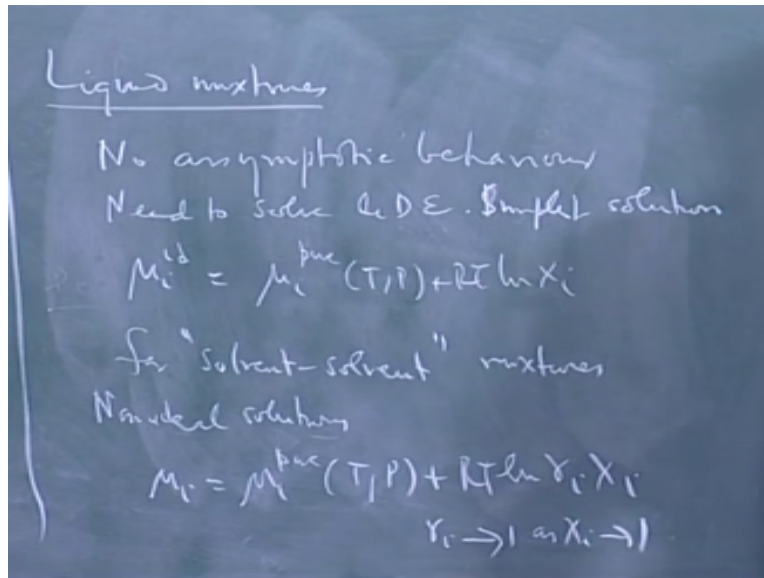 Liquid mixtures
No assymptotic behaviour
Need to solve GDE. Simplest solution
μᵢⁱᵈ = μᵢᵖᵘʳᵉ (T,P) + RT ln xᵢ
for "solvent-solvent" mixtures
Nonideal solutions
μᵢ = μᵢᵖᵘʳᵉ (T,P) + RT ln γᵢ xᵢ
γᵢ → 1 as xᵢ → 1